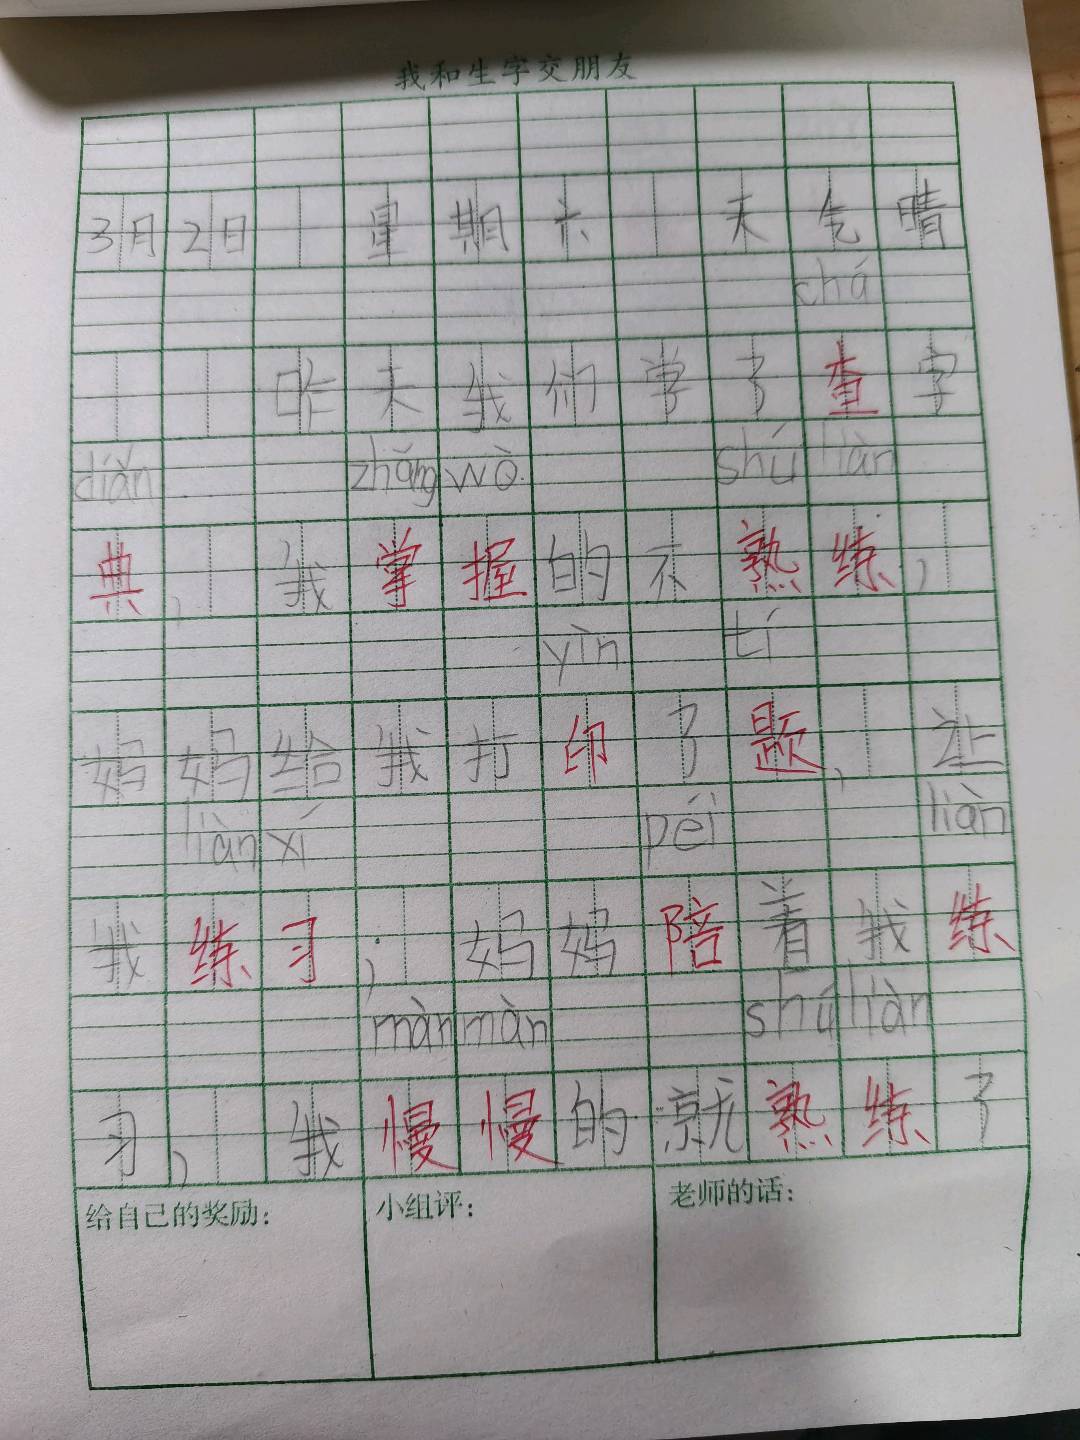 我和生字交朋友
3月2日 星期六 天气晴
chá
昨天我们学了查字
diǎn zhǎng wò shú liàn
典，我掌握的不熟练，
yìn tí
妈妈给我打印了题，让
liàn xí péi liàn
我练习，妈妈陪着我练
màn màn shú liàn
习，我慢慢的就熟练了
给自己的奖励： 小组评： 老师的话：